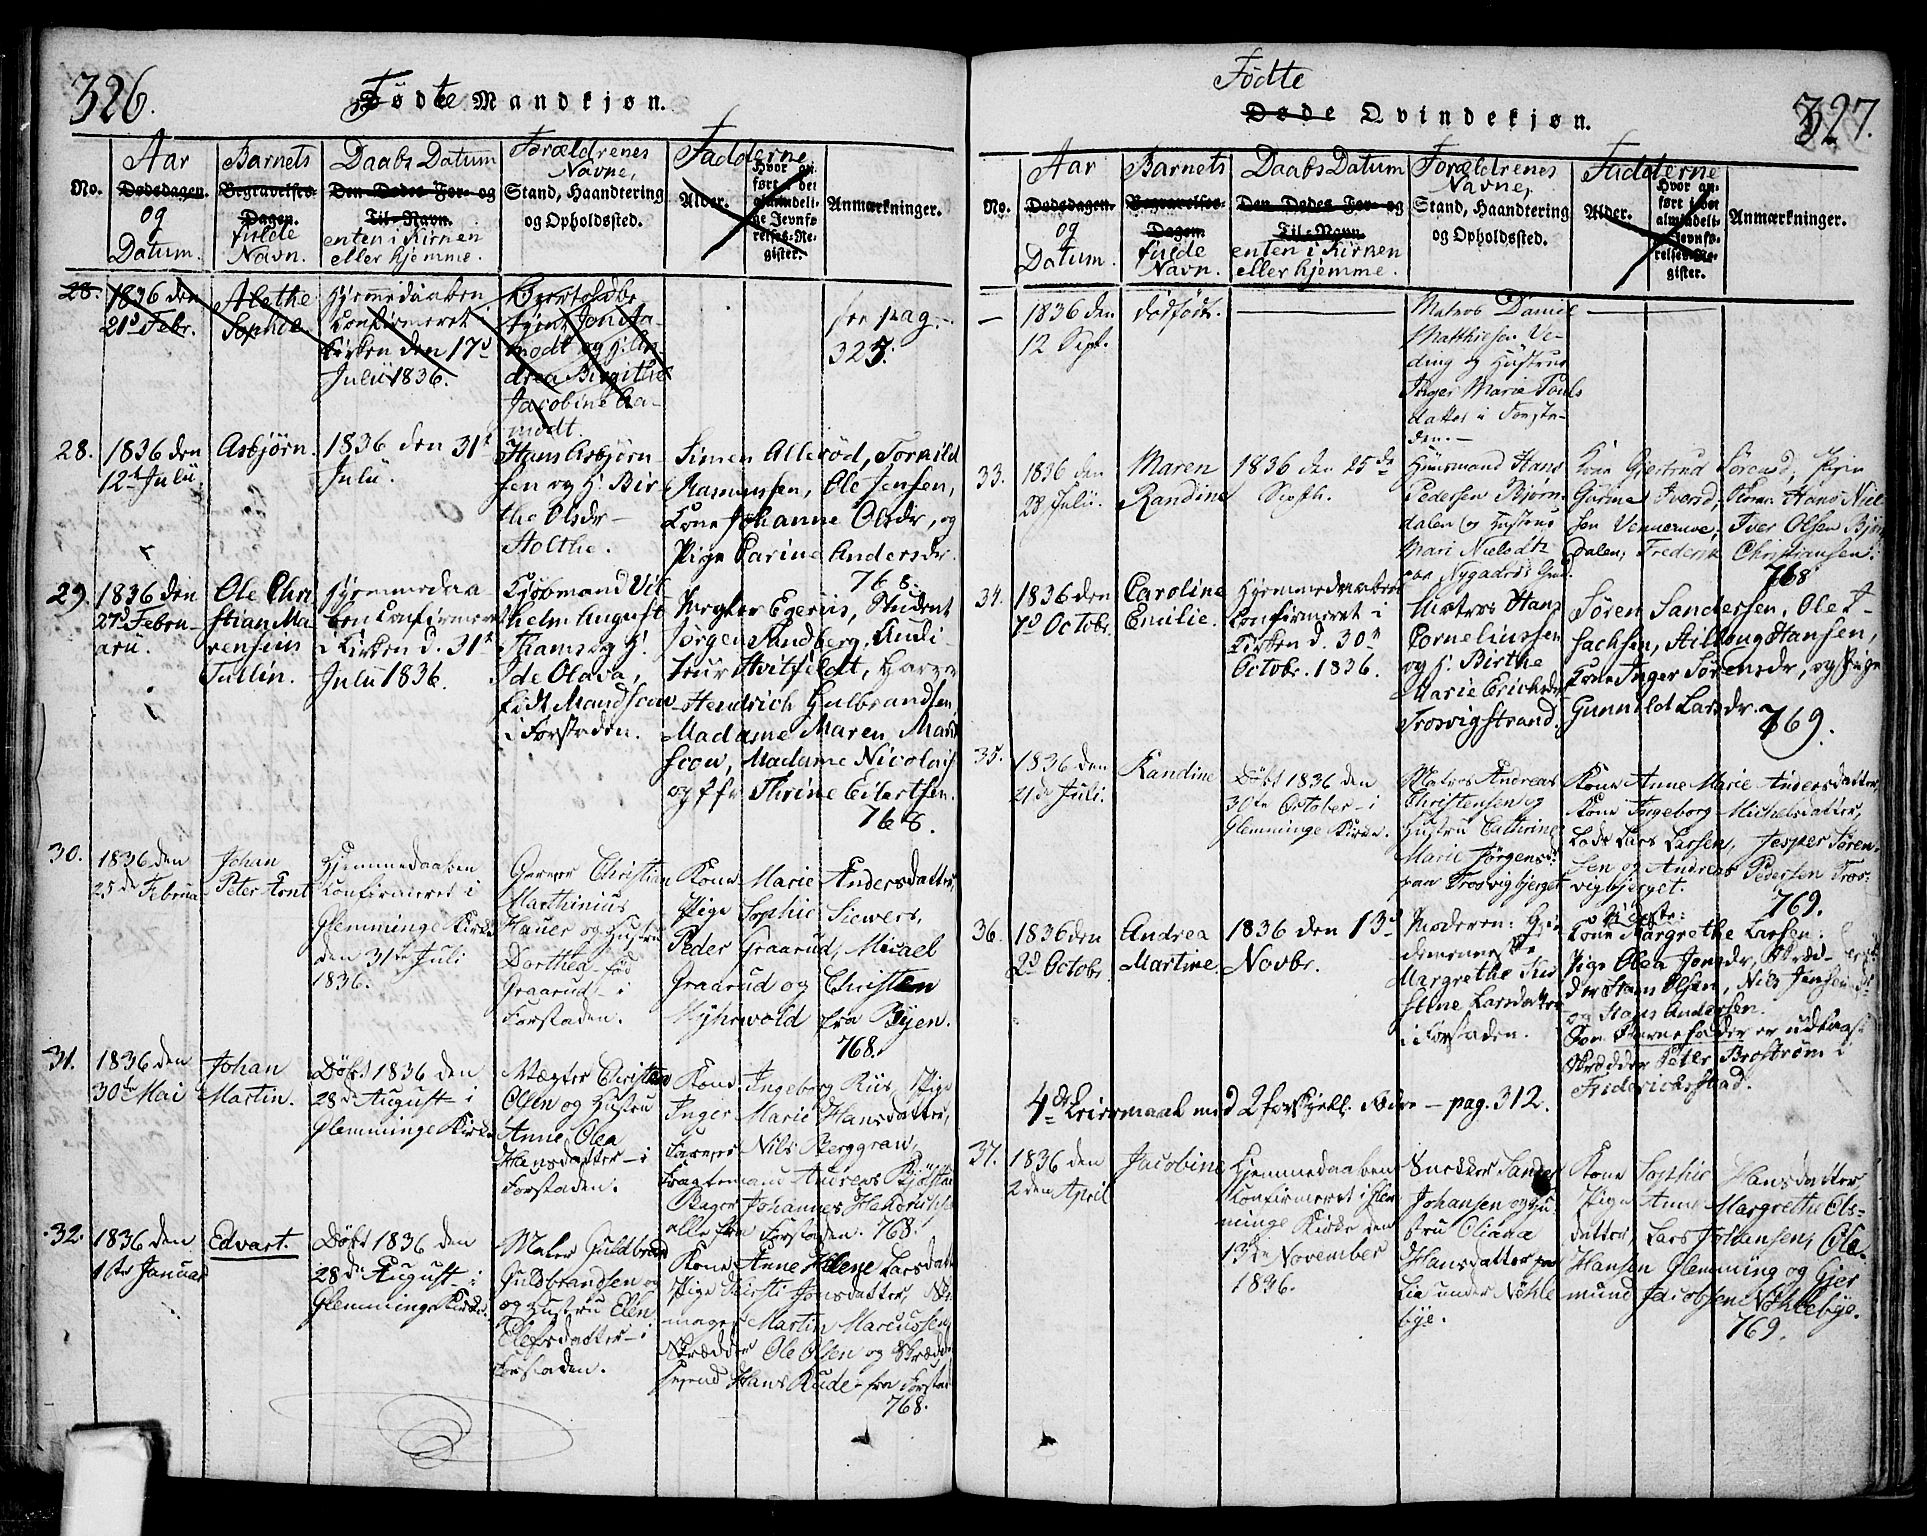 326.
Fødte Mandkjøn.
No.
Aar
Dødsdagen.
og
Datum.
Barnets
Begravelses-
Dagen.
fulde
Navn.
Daabs Datum
Den Dødes For- og
Til-Navn.
enten i Kirken
eller hjemme.
Forældrenes
Navne,
Stand, Haandtering
og Opholdssted.
Fadderne
Alder.
Hvor an-
ført i det
almindeli-
ge Jevnfø-
relses-Re-
gister.
Anmærkninger.
28.
1836 den
21d Febr.
Alethe
Sophie
Hjemmedaaben
Confirmeret i
Kirken den 17d
Julii 1836.
Jacobine Aa-
modt
see pag.
325.
28.
1836 den
12d Julii
Asbjørn.
1836 den 31t
Julii.
Hans Asbjørn-
sen og H. Bir
the Olsdr
Holthe.
Simen Allerød, Tormild
Rasmussen, Ole Jensen,
Kone Johanne Olsdr, og
Pige Carine Andersdr.
768.
29.
1836 den
27d Febru-
arii.
Ole Chri
stian Ma
rensius
Tullin.
Hjemmedaa
ben Confirmeret
i Kirken d. 31t
Julii 1836.
Kjøbmand Vil-
helm August
Thams og H.
Ide Olava,
født Mandscow
i Forstaden.
Student
Jørgen Sandberg, Audi-
teur Hvitfeldt,
Hendrich Gulbrandsen,
Madame Maren Mand
scow, Madame Nicolais
og Jfr Thrine Eilertsen.
768.
30.
1836 den
25de Februar
Johan
Peter Arnt
Hjemmedaaben
Confirmeret i
Glemminge Kirke
den 31te Juli
1836.
Garver Christian
Marthinius
Hauer og Hustru
Dorthea fød
Graarud i
Forstaden.
Kone Marie Andersdatter,
Pige Sophie Siewers,
Peder Graarud, Micael
Graarud og Christen
Myhrwold fra Byen.
768.
31.
1836 den
30de Mai
Johan
Martin.
Døbt 1836 den
28de August i
Glemminge Kirke
Vægter Christian
Olsen og Hustru
Anne Olea
Hansdatter i
Forstaden.
Kone Ingeborg Riis, Pige
Inger Marie Hansdatter,
Farver Nils Berggran,
Fragtemand Andreas
Bager Johannes Hendrichsen
alle fra Forstaden. 768.
32.
1836 den
1ste Januar
Edvart.
Døbt 1836 den
28de August i
Glemminge Kirke.
Maler Guldbrand
Guldbrandsen og
og Hustru Elen
Elefsdatter i
Forstaden.
Kone Anne Helene Larsdatter
Pige Kirsti Jonsdatter,
Martin Marcussen,
Skrædder Ole Olsen og Skrædder
svend Hans Rude fra Forstad
768.
327.
Fødte
Døde Qvindekjøn.
No.
Aar
Dødsdagen.
og
Datum.
Barnets
Begravelses-
Dagen.
fulde
Navn.
Daabs Datum
Den Dødes For- og
Til-Navn
enten i Kirken
eller hjemme.
Forældrenes
Navne,
Stand, Haandtering
og Opholdssted.
Fadderne
Alder.
Hvor an-
ført i det
almindeli-
ge Jevnfø-
relses-Re-
gister.
Anmærkninger.
1836 den
12 Sept.
dødfødt.
Matros Daniel
Matthiesen Ve-
ding og Hustrue
Inger Marie Pouls
datter i Forsta-
den.
33.
1836 den
28 Julii.
Maren
Randine
1836 den 25de
Septb.
Huusmand Hans
Pedersen Bjørn
dalen og Hustrue
Mari Nielsdtr
Kone Gjertrud Sørensd, Pige
Gurine Iversd; Hans Niel
sen Vennerwe, Iver Olsen Bjørn
dalen, Frederik Christiansen.
768
34.
1836 den
7d Octobr.
Caroline
Emilie.
Hjemmedaaben
Confirmeret i
Kirken d. 30te
Octobr. 1836.
Matros Hans
Corneliussen
og H. Birthe
Marie Ericksdr
Trosvigstrand.
Søren Sandersen, Ole I-
sachsen, Hansen,
Kone Inger Sørensdr, og Pige
Gunnild Larsdr.
769.
35.
1836 den
21de Juli.
Randine
Døbt 1836 den
30te October i
Glemminge Kirke.
Matros Andreas
Christensen og
Hustru Cathrine
Marie Jørgensd.
paa Trosvigbjerget
Kone Anne Marie Andersdatter,
Kone Ingeborg Michelsdatter,
Lods Lars Larsen, Jesper Søren-
sen og Andreas Pedersen Tros-
vigbjerget.
769.
36.
1836 den
2d Octobr.
Andrea
Martine.
1836 den 13d
Novbr.
Moderen:
Margrethe Kir
stine Larsdatter
i Forstaden.
Kone Margrethe Larsen.
Pige Olea Jensdr, Skræd-
der Hans Olsen, Nils Jensen
og Hans Andersen.
Som Barnefader er udlagt
Skrædder Peter Brostrøm i
Frederichsstad.
4de Leiermaal med 2 forskjell. Mødre – pag. 312.
37.
1836 den
2den April
Jacobine
Hjemmedaaben
Confirmeret i Glem
minge Kirke den
13de November
1836.
Snekker Sander
Johansen og Hu-
stru Oliana
Hansdatter paa
Lia under Nøkle
bye.
Kone Sophie Hansdatter
Pige Anne Margrethe Els-
datter, Lars Johansen, Ole
Hansen Glemming og Gjer
mund Jacobsen Nøklebye.
769.